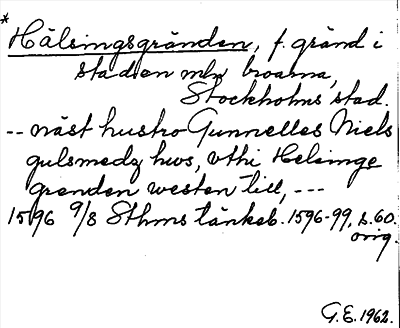 *
Hälsingsgränden, f. gränd i
staden mln broarna,
Stockholms stad.
-- näst hustro Gunnelles Niels
gulsmedz hws, vthi Helsinge
grenden westen till, ---
1596 9/8 Sthms tänkeb. 1596-99, s. 60.
orig.
G.E. 1962.